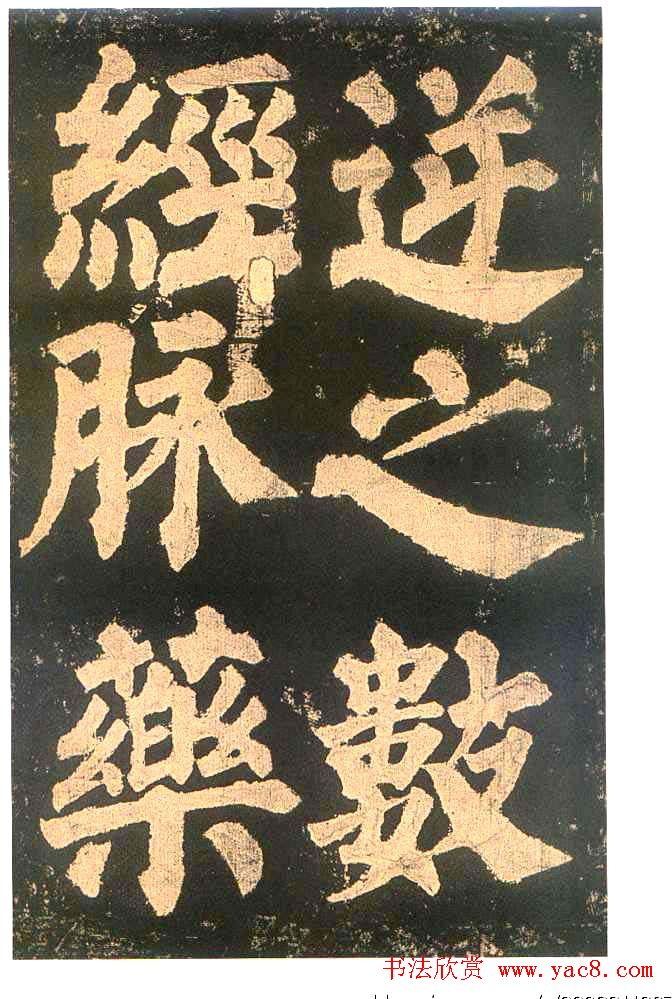 逆之數
經脉藥
书法欣赏 www.yac8.com